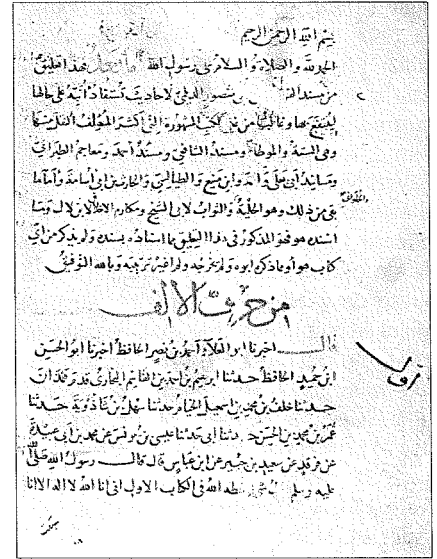 بسم الله الرحمن الرحيم
الحمد لله والصلاة والسلام على رسول الله أما بعد فهذا تعليق
من مسند الفردوس لأبي منصور الديلمي لأحاديث تستفاد أبقيته على حالها
لينتفع بها وغالبها من غير الكتب المشهورة التي أكثر المؤلف النقل منها
وهي الستة والموطأ ومسند الشافعي ومسند أحمد ومعاجم الطبراني
ومسانيد أبي يعلى وأحمد وابن منيع والطيالسي والحارث بن أبي أسامة وأما ما
بقي من ذلك وهو الحلية والثواب لأبي الشيخ ومكارم الأخلاق لابن لال وما
أسنده هو فهو المذكور في هذا التعليق بإسناده بسنده ولم يذكر من أي
كتاب هو أو ما ذكره أبوه ولم يخرجه وبالله التوفيق
من حرف الألف
قال أخبرنا أبو العلاء أحمد بن نصر الحافظ أخبرنا أبو الحسن
ابن حميد الحافظ حدثنا إبرهيم بن أحمد بن القاسم البخاري قدم
حدثنا خلف بن محمد بن إسمعيل الخيام حدثنا سهل بن شاذويه حدثنا
عمر بن محمد بن الحسن حدثنا أبي حدثنا عيسى بن يونس عن محمد بن أبي عبيدة
عن فرقد عن سعيد بن جبير عن ابن عباس قال قال رسول الله صلى الله
عليه وسلم خطه الله في الكتاب الأول إني أنا الله لا إله إلا أنا